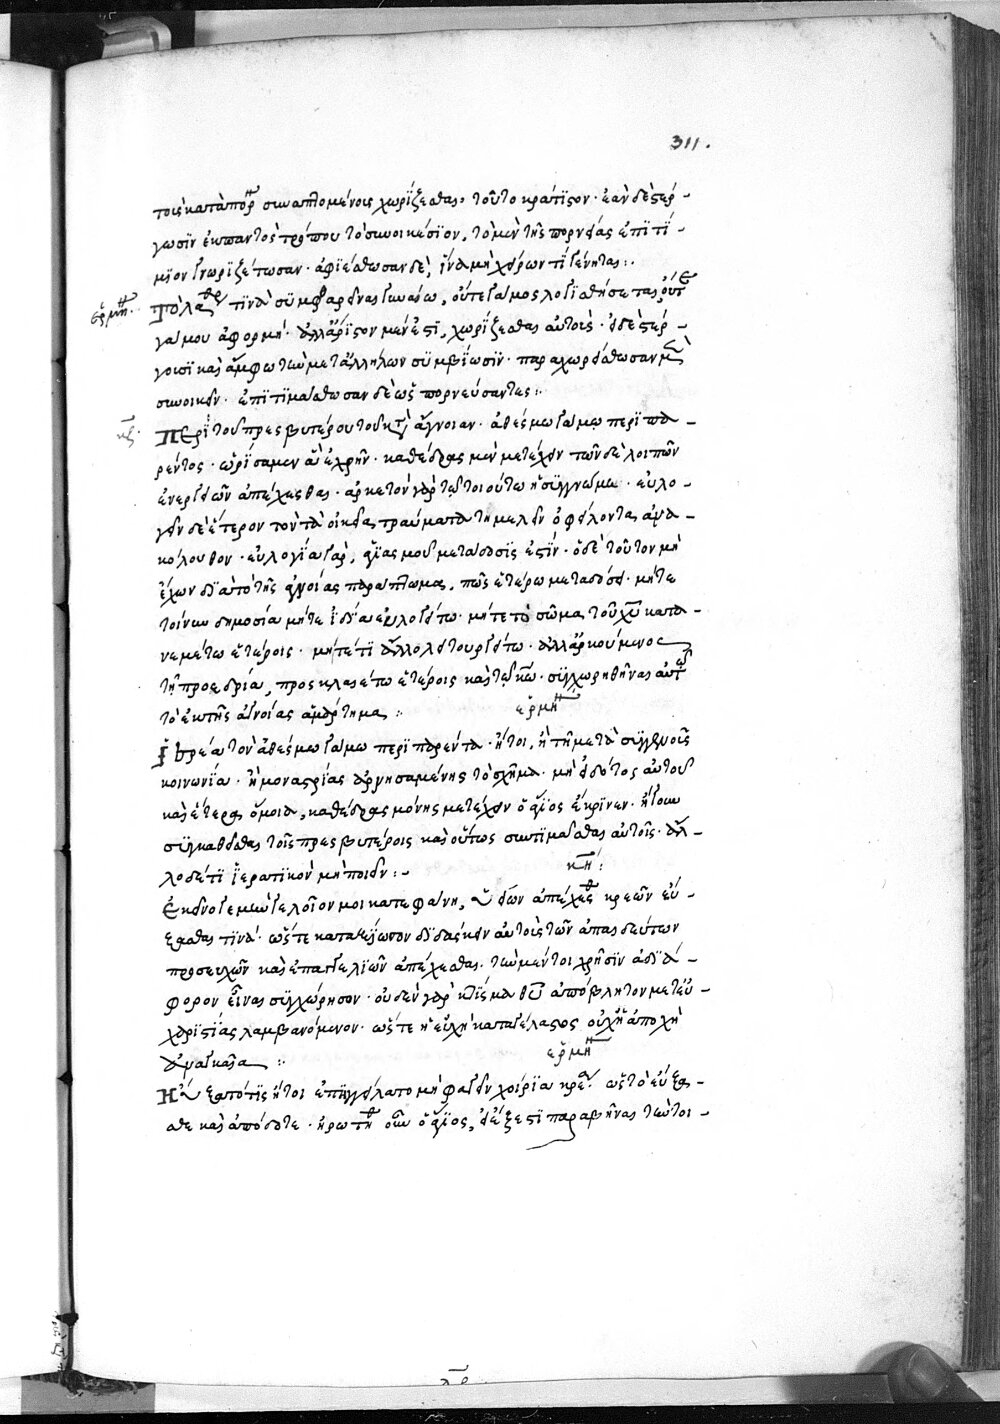 311.
τοῖς κατὰ πορ συναπτομένοις χωρίζεσθαι, τοῦτο κράτιστον· ἐὰν δὲ στέρ-
γωσιν ἐκ παντὸς τρόπου τὸ συνοικέσιον, τὸ μὲν τῆς πορνείας ἐπιτί-
μιον γνωριζέτωσαν· ἀφιέσθωσαν δὲ, ἵνα μὴ χεῖρόν τι γένηται:.
ἑρμη
τινὰ συμφθαρῆναι γυναίω, οὔτε γάμος λογισθήσεται, οὔτε
γάμου ἀφορμή· ἀλλ' ἄριστον μέν ἐστι, χωρίζεσθαι αὐτοὺς· εἰ δὲ στέρ-
γοισι καὶ ἄμφω τὴν μετ' ἀλλήλων συμβίωσιν· παραχωρείσθωσαν μὲν
συνοικεῖν· ἐπιτιμάσθωσαν δὲ ὡς πορνεύσαντες:.
κζ.
Περὶ τοῦ πρεσβυτέρου τοῦ κατ' ἄγνοιαν· ἀθέσμω γάμω περιπα-
ρέντος· ὡρίσαμεν ἃ ἐχρῆν· καθέδρας μὲν μετέχειν τῶν δὲ λοιπῶν
ἐνεργειῶν ἀπέχεσθαι· ἀρκετὸν γὰρ τῶ τοιούτω ἡ συγγνώμη· εὐλο-
γεῖν δὲ ἕτερον τὸν τὰ οἰκεῖα τραύματα τημελεῖν ὀφείλοντα, ἀνα-
κόλουθον· εὐλογία γὰρ, ἁγιασμοῦ μετάδοσίς ἐστιν· ὁ δὲ τοῦτον μὴ
ἔχων διὰ τὸ τῆς ἀγνοίας παράπτωμα, πῶς ἑτέρω μεταδώσει· μήτε
τοίνυν δημοσία μήτε ἰδία εὐλογείτω· μήτε τὸ σῶμα τοῦ χυ κατα-
νεμέτω ἑτέροις· μήτέ τι ἄλλο λειτουργείτω· ἀλλ' ἀρκούμενος
τῆ προεδρία, προσκλαιέτω ἑτέροις καὶ τῶ κω· συγχωρηθῆναι αὐτ
τὸ ἐκ τῆς ἀγνοίας ἁμάρτημα:. ἑρμη
Ἱερέα τὸν ἀθέσμω γάμω περιπαρέντα· ἤτοι, ἢ τῆ μετὰ συγγενοῦς
κοινωνία· ἢ μοναστρίας ἀρνησαμένης τὸ σχῆμα· μὴ εἰδότος αὐτοῦ
καὶ ἕτερα ὅμοια, καθέδρας μόνης μετέχειν ὁ ἅγιος ἔκρινεν· ἤγουν
συγκαθῆσθαι τοῖς πρεσβυτέροις καὶ οὕτως συντιμᾶσθαι αὐτοῖς· ἄλ-
λο δέ τι ἱερατικὸν μὴ ποιεῖν:. κη:
Ἐκεῖνό γε μὴν γελοῖόν μοι κατεφάνη, κρεῶν εὔ-
ξασθαί τινα· ὥστε καταξίωσον διδάσκειν αὐτοὺς τῶν ἀπαιδεύτων
προσευχῶν καὶ ἐπαγγελιῶν ἀπέχεσθαι. τὴν μέντοι χρῆσιν ἀδιά-
φορον εἶναι συγχώρησον· οὐδὲν γὰρ κτίσμα θυ ἀπόβλητον μετ' εὐ-
χαριστίας λαμβανόμενον· ὥστε ἡ εὐχὴ καταγέλαστος οὐχ ἡ ἀποχὴ
ἀναγκαία:. ἑρμη
ἤτοι ἐπηγγείλατο μὴ φαγεῖν χοίρεια κρέα· εὔξα-
σθε καὶ ἀπόδοτε· ἠρωτήθη οὖν ὁ ἅγιος, εἰ ἔξεστι παραβῆναι τὴν τοι-